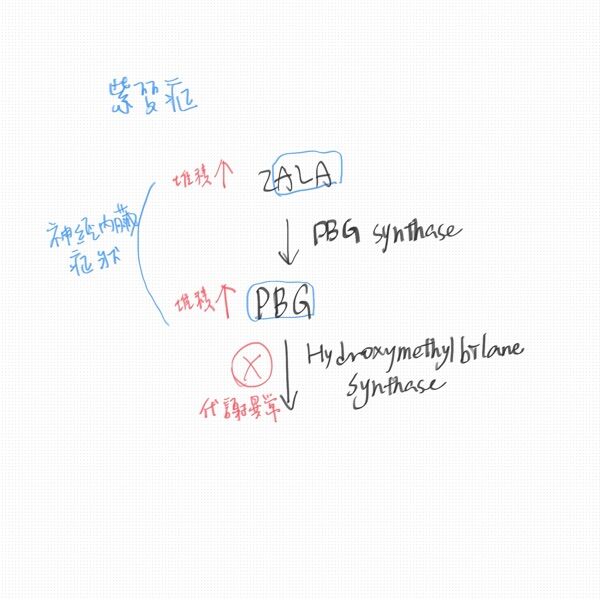 紫質症
堆積↑
2ALA
神經內臟
症狀
PBG synthase
堆積↑
PBG
X
Hydroxymethylbilane
synthase
代謝異常